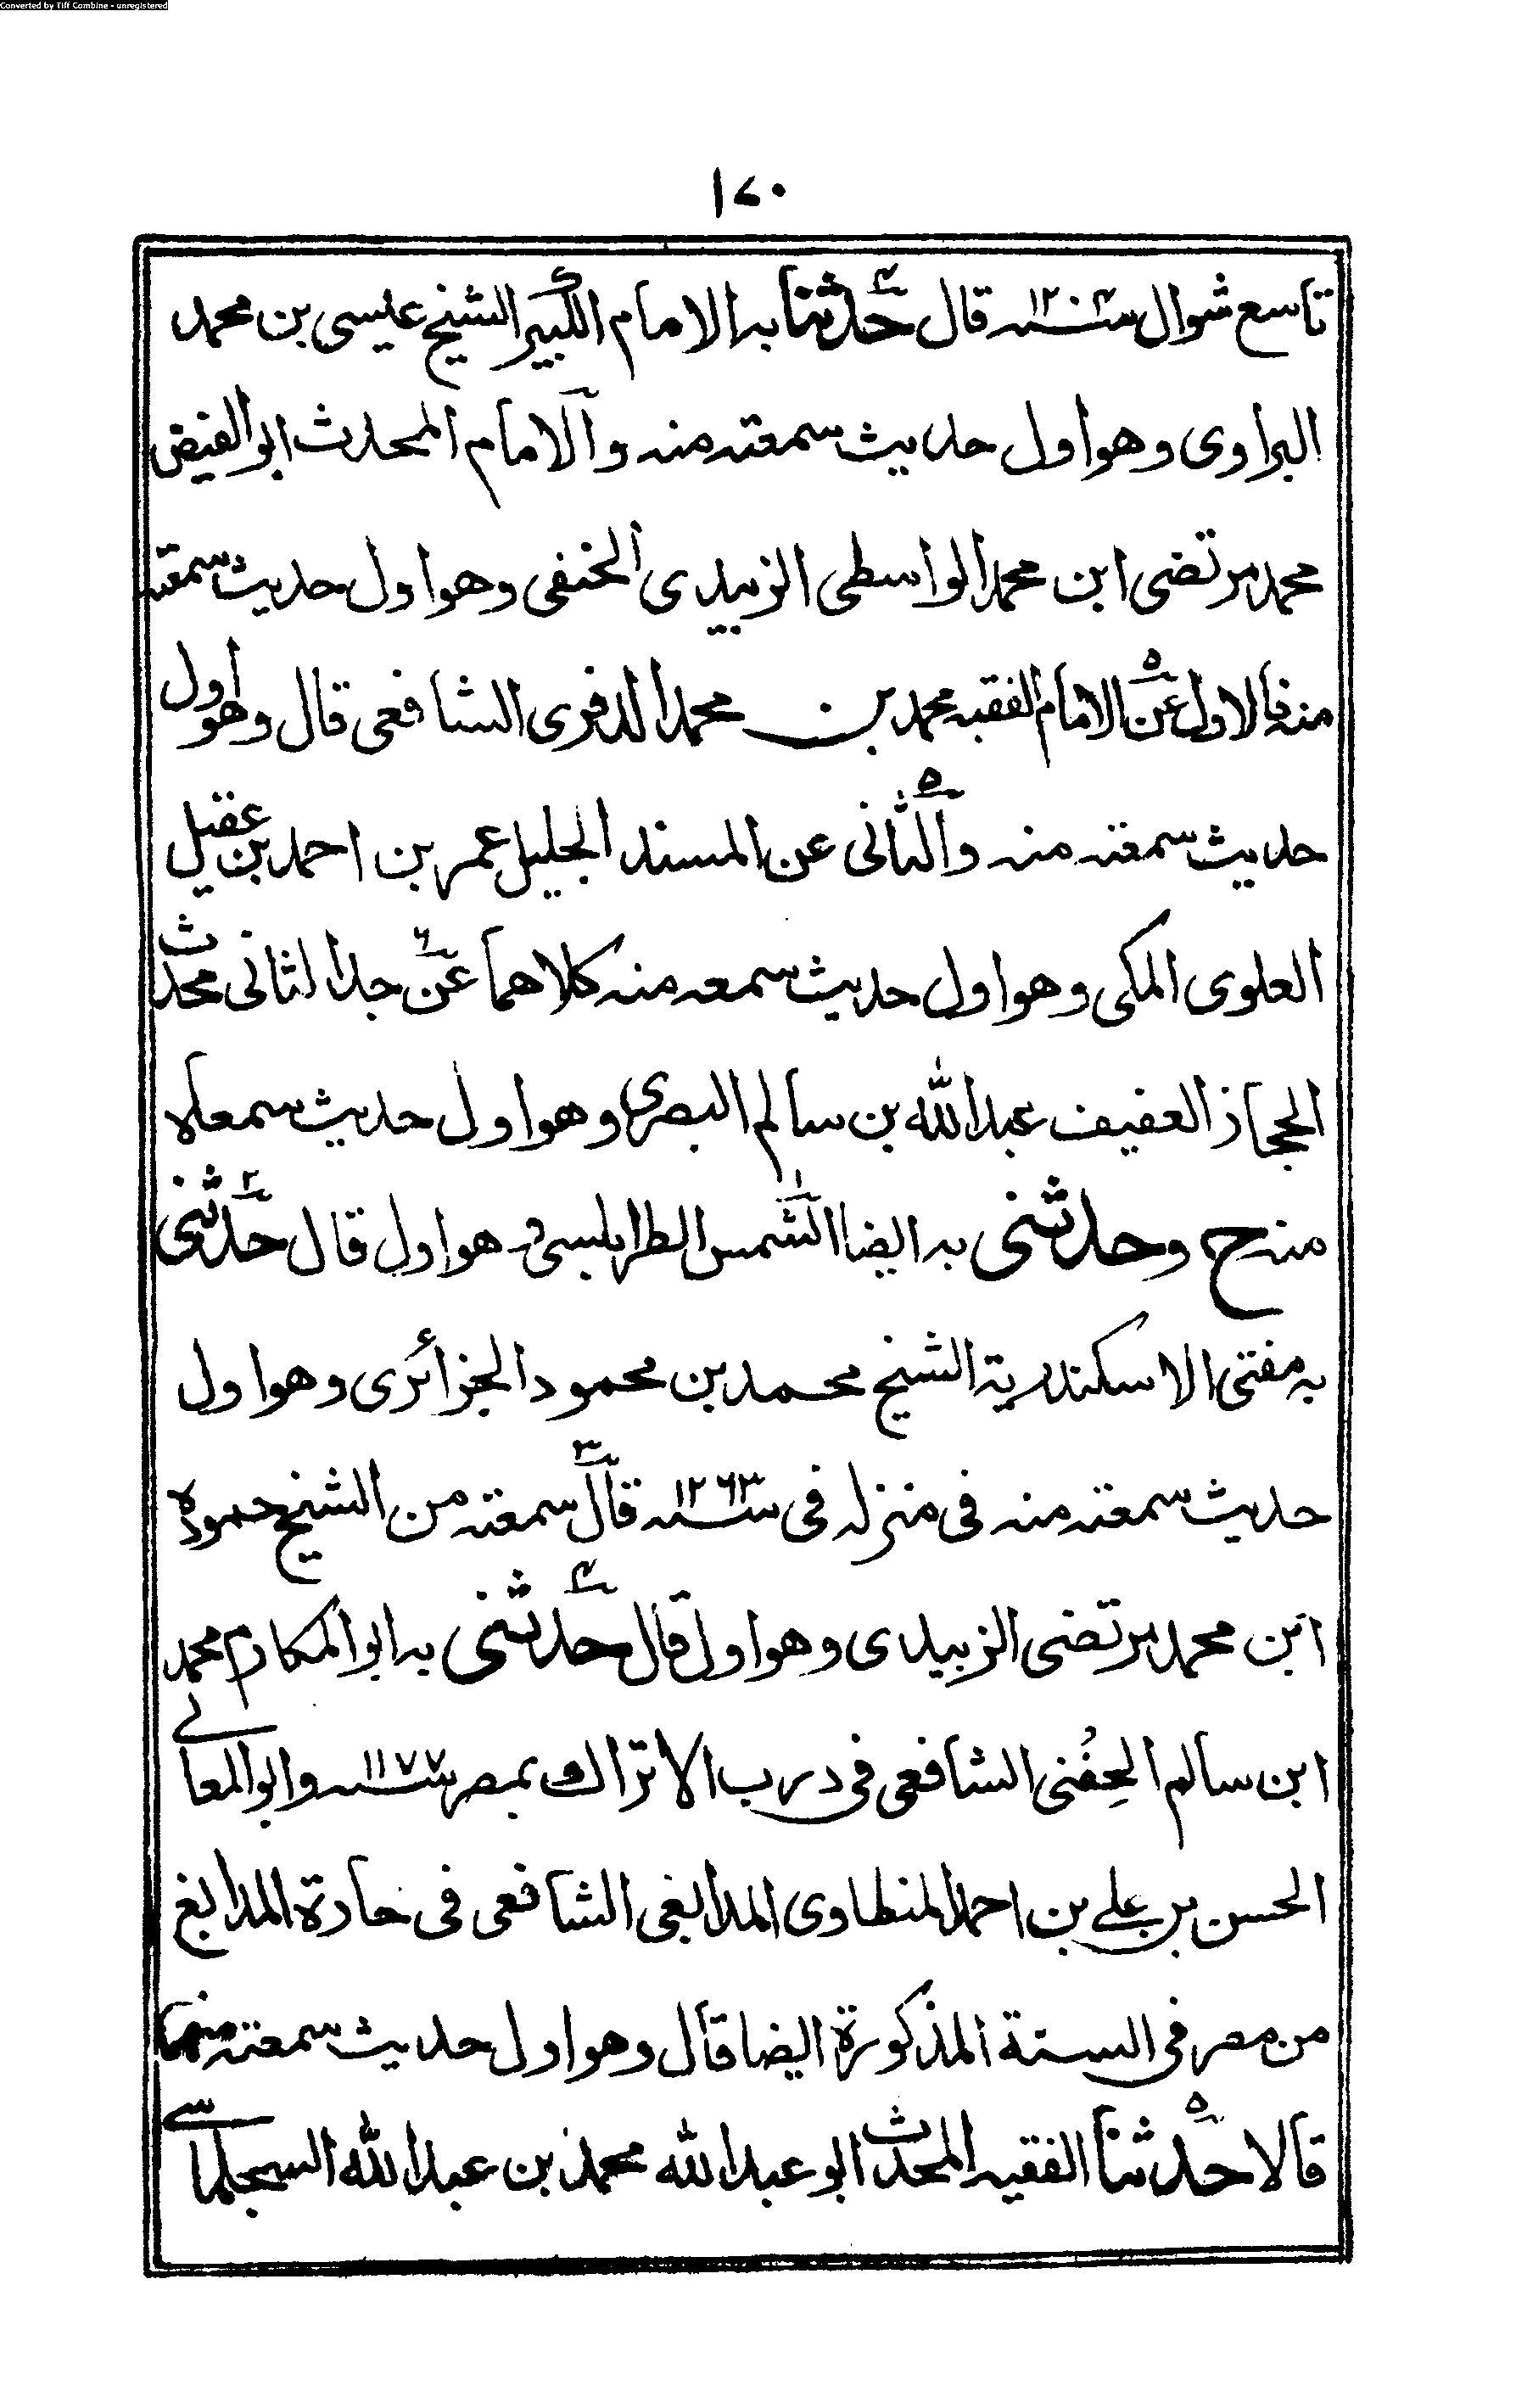 Converted by Tiff Combine - unregistered
١٧٠
تاسع شوال سنة ١٢٠٤ قال حدثنا به الامام الكبير الشيخ عيسى بن محمد
البراوى وهو اول حديث سمعته منه والامام المحدث ابو الفيض
محمد مرتضى ابن محمد الواسطى الزبيدى الحنفى وهو اول حديث سمعته
منه فالاول عن الامام الفقيه محمد بن محمد الدفرى الشافعى قال وهو اول
حديث سمعته منه والثانى عن المسند الجليل عمر بن احمد بن عقيل
العلوى المكى وهو اول حديث سمعه منه كلاهما عن جد الثانى محدث
الحجاز العفيف عبد الله بن سالم البصرى وهو اول حديث سمعاه
منه ح وحدثنى به ايضا الشمس الطرابلسى وهو اول قال حدثنى
به مفتى الاسكندرية الشيخ محمد بن محمود الجزائرى وهو اول
حديث سمعته منه فى منزله فى سنة ١٢٦٣ قال سمعته من الشيخ حموده
ابن محمد مرتضى الزبيدى وهو اول قال حدثنى به ابو المكارم محمد
ابن سالم الحِفْنى الشافعى فى درب الاتراك بمصر سنة ١١٧٧ وابو المعالے
الحسن بن علے بن احمد المنطاوى المدابغى الشافعى فى حارة المدابغ
من مصر فى السنة المذكورة ايضا قال وهو اول حديث سمعته منهما
قالا حدثنا الفقيه المحدث ابو عبد الله محمد بن عبد الله السجلماسے